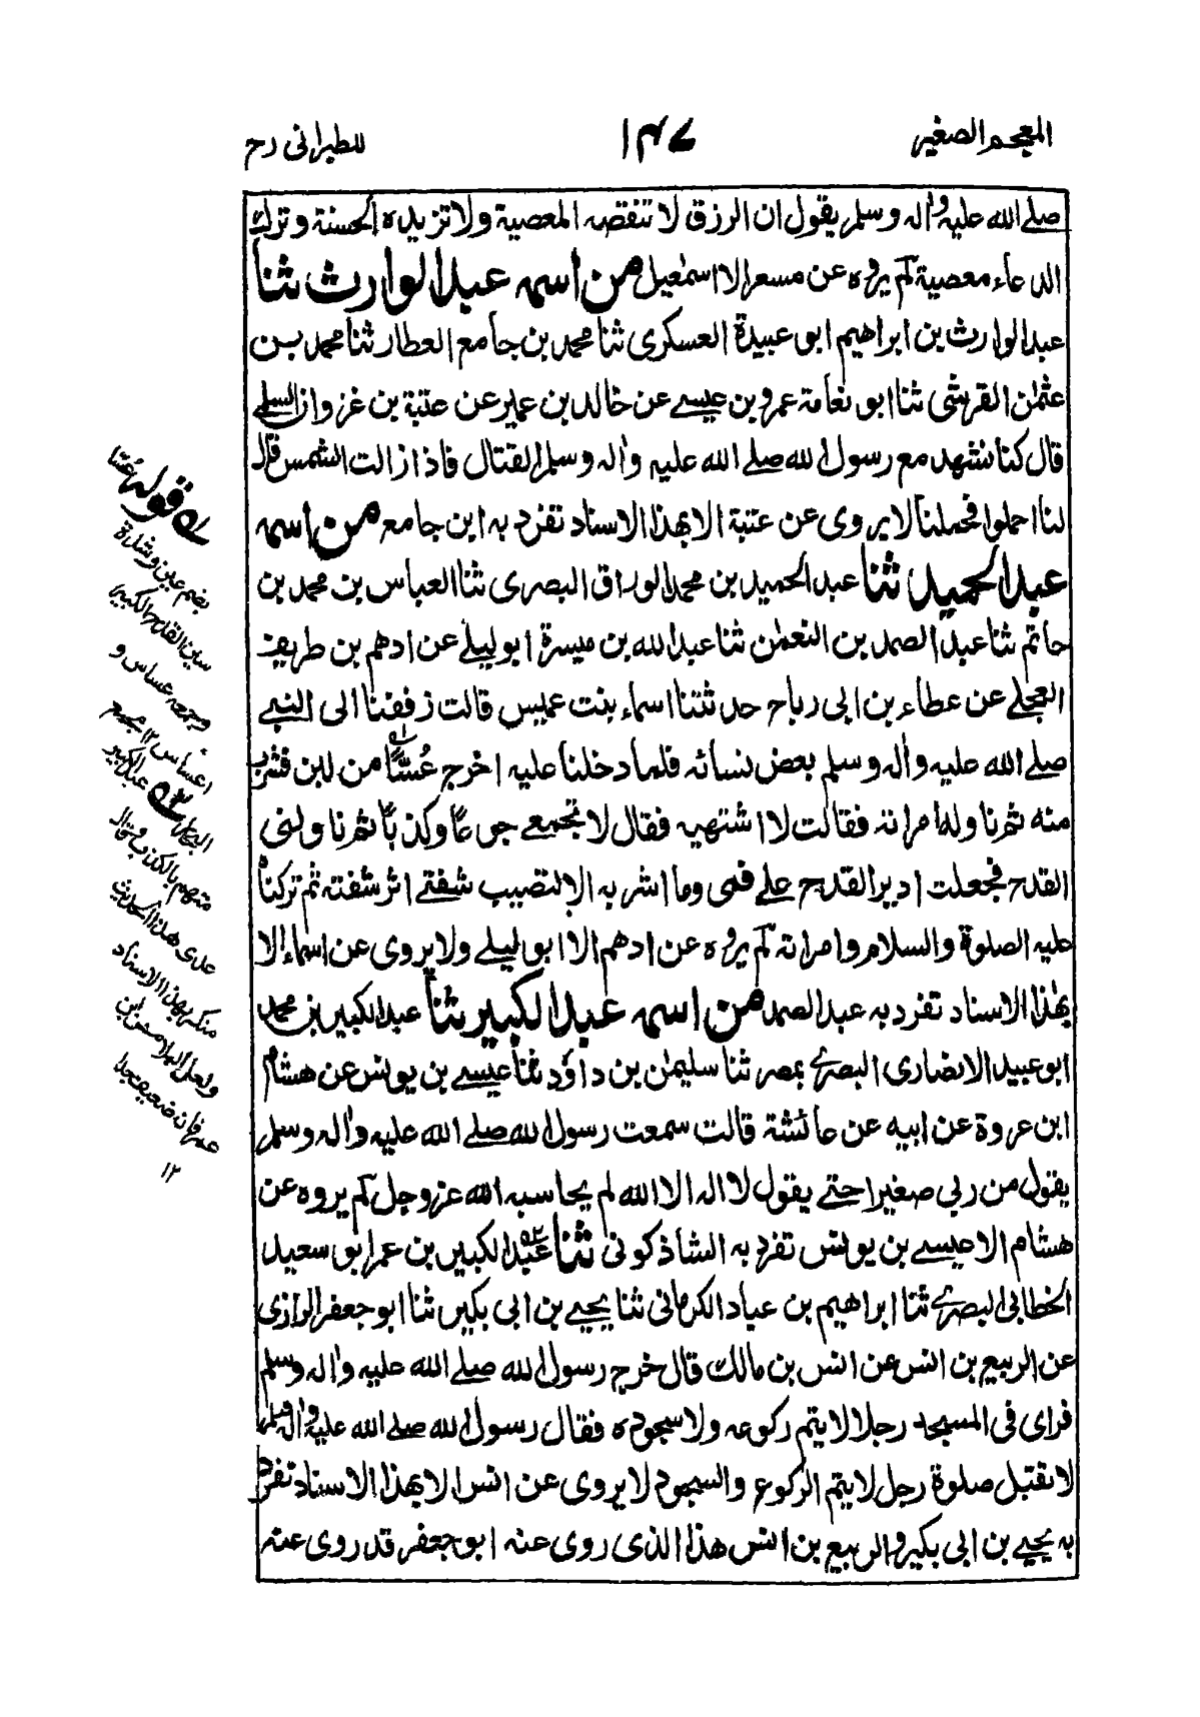 المعجم الصغير
١٤٧
للطبرانی رح
صلے الله علیه واٰله وسلم یقول ان الرزق لا تنقصه المعصیة ولا تزیده الحسنة وترك
الدعاء معصیة لم یروه عن مسعر الا اسمٰعیل من اسمه عبد الوارث ثنا
عبد الوارث بن ابراهیم ابو عبیدة العسکری ثنا محمد بن جامع العطار ثنا محمد بن
عثمٰن القرشی ثنا ابو نعامة عمرو بن عیسے عن خالد بن عمیر عن عتبة بن غزوان السلمے
قال کنا نشهد مع رسول الله صلے الله علیه واٰله وسلم القتال فاذا زالت الشمس قال
لنا احملوا فحملنا لا یروی عن عتبة الا بهذا الاسناد تفرد به ابن جامع من اسمه
عبد الحمید ثنا عبد الحمید بن محمد الوراق البصری ثنا العباس بن محمد بن
حاتم ثنا عبد الصمد بن النعمٰن ثنا عبد الله بن میسرة ابو لیلے عن ادهم بن طریف
العجلے عن عطاء بن ابی رباح حدثتنا اسماء بنت عمیس قالت زففنا الی النبے
صلے الله علیه واٰله وسلم بعض نسائه فلما دخلنا علیه اخرج عُسًّا من لبن فشرب
منه ثم ناوله امراته فقالت لا اشتهیه فقال لا تجمعے جوعًا وکذبًا ثم ناولنی
القدح فجعلت ادیر القدح علے فمی وما اشربه الا لتصیب شفتے اثر شفته ثم ترکناه
علیه الصلوة والسلام وامراته لم یروه عن ادهم الا ابو لیلے ولا یروی عن اسماء الا
بهٰذا الاسناد تفرد به عبد الصمد من اسمه عبد الکبیر ثنا عبد الکبیر بن محمد
ابو عبید الانصاری البصرے بمصر ثنا سلیمٰن بن داؤد ثنا عیسے بن یونس عن هشام
ابن عروة عن ابیه عن عائشة قالت سمعت رسول الله صلے الله علیه واٰله وسلم
یقول من ربی صغیرا حتے یقول لا اله الا الله لم یحاسبه الله عز وجل لم یروه عن
هشام الا عیسے بن یونس تفرد به الشاذکونی ثنا عبد الکبیر بن عمر ابو سعید
الخطابی البصرے ثنا ابراهیم بن عباد الکرمانی ثنا یحیے بن ابی بکیر ثنا ابو جعفر الرازی
عن الربیع بن انس عن انس بن مالك قال خرج رسول الله صلے الله علیه واٰله وسلم
فرای فی المسجد رجلا لا یتم رکوعه ولا سجوده فقال رسول الله صلے الله علیه واٰله وسلم
لا تقبل صلوة رجل لا یتم الرکوع والسجود لا یروی عن انس الا بهذا الاسناد تفرد
به یحیے بن ابی بکیر والربیع بن انس هذا الذی روی عنه ابو جعفر قد روی عنه
قوله عُسًّا
بضم عین وشدة
سین القدح الکبیر
وجمعه عساس و
اعساس ١٢ مجمع
عبد الکبیر
متهم بالکذب وقال
عدی هذا الحدیث
منکر بهذا الاسناد
١٢